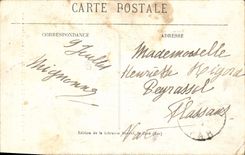 CARTE POSTALE
CORRESPONDANCE
ADRESSE
9 Juillet
Mignonne
Mademoiselle
Henriette
Peyrassol
Flassans
Var
Edition de la Librairie